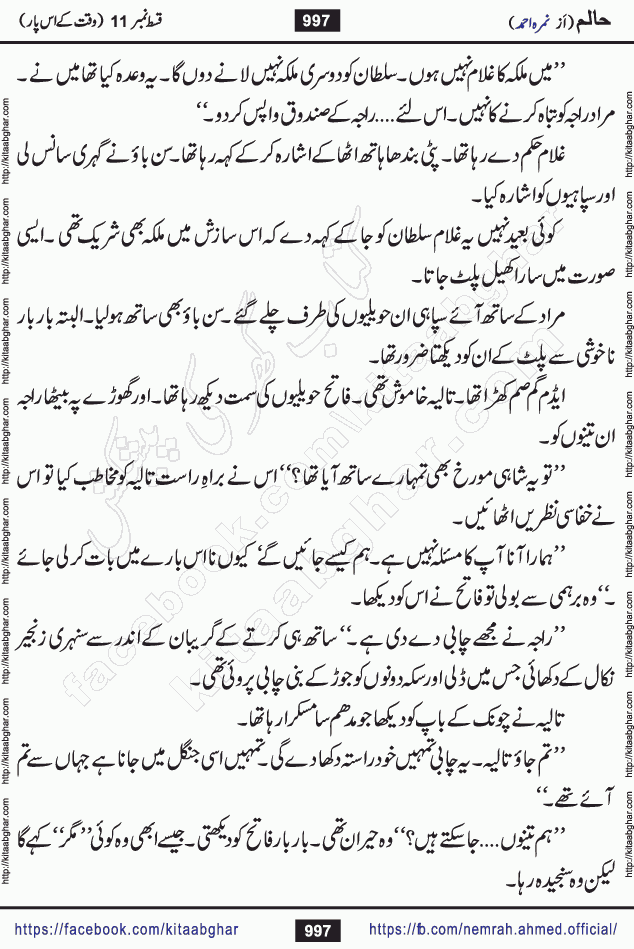 حالم (از نمرہ احمد)
997
قسط نمبر 11 (وقت کے اس پار)
’’میں ملکہ کا غلام نہیں ہوں۔ سلطان کو دوسری ملکہ نہیں لانے دوں گا۔ یہ وعدہ کیا تھا میں نے۔
مراد راجہ کو تباہ کرنے کا نہیں۔ اس لئے .... راجہ کے صندوق واپس کر دو۔‘‘
غلام حکم دے رہا تھا۔ پٹی بندھا ہاتھ اٹھا کے اشارہ کر کے کہہ رہا تھا۔ سن باؤ نے گہری سانس لی
اور سپاہیوں کو اشارہ کیا۔
کوئی بعید نہیں یہ غلام سلطان کو جا کے کہہ دے کہ اس سازش میں ملکہ بھی شریک تھی۔ ایسی
صورت میں سارا کھیل پلٹ جاتا۔
مراد کے ساتھ آئے سپاہی ان حویلیوں کی طرف چلے گئے۔ سن باؤ بھی ساتھ ہو لیا۔ البتہ بار بار
ناخوشی سے پلٹ کے ان کو دیکھتا ضرور تھا۔
ایڈم گم صم کھڑا تھا۔ تالیہ خاموش تھی۔ فاتح حویلیوں کی سمت دیکھ رہا تھا۔ اور گھوڑے پہ بیٹھا راجہ
ان تینوں کو۔
’’تو یہ شاہی مورخ بھی تمہارے ساتھ آیا تھا؟‘‘ اس نے براہِ راست تالیہ کو مخاطب کیا تو اس
نے خفا سی نظریں اٹھائیں۔
’’ہمارا آنا آپ کا مسئلہ نہیں ہے۔ ہم کیسے جائیں گے‘ کیوں نا اس بارے میں بات کر لی جائے
۔‘‘ وہ برہمی سے بولی تو فاتح نے اس کو دیکھا۔
’’راجہ نے مجھے چابی دے دی ہے۔‘‘ ساتھ ہی کرتے کے گریبان کے اندر سے سنہری زنجیر
نکال کے دکھائی جس میں ڈلی اور سکہ دونوں کو جوڑ کے بنی چابی پروئی تھی۔
تالیہ نے چونک کے باپ کو دیکھا جو مدھم سا مسکرا رہا تھا۔
’’تم جاؤ تالیہ۔ یہ چابی تمہیں خود راستہ دکھا دے گی۔ تمہیں اسی جنگل میں جانا ہے جہاں سے تم
آئے تھے۔‘‘
’’ہم تینوں .... جا سکتے ہیں؟‘‘ وہ حیران تھی۔ بار بار فاتح کو دیکھتی۔ جیسے ابھی وہ کوئی ’’مگر‘‘ کہے گا
لیکن وہ سنجیدہ رہا۔
http://kitaabghar.com
کتاب گھر کی پیشکش
facebook.com/kitaabghar
kitaabghar.com
https://facebook.com/kitaabghar
997
https://fb.com/nemrah.ahmed.official/